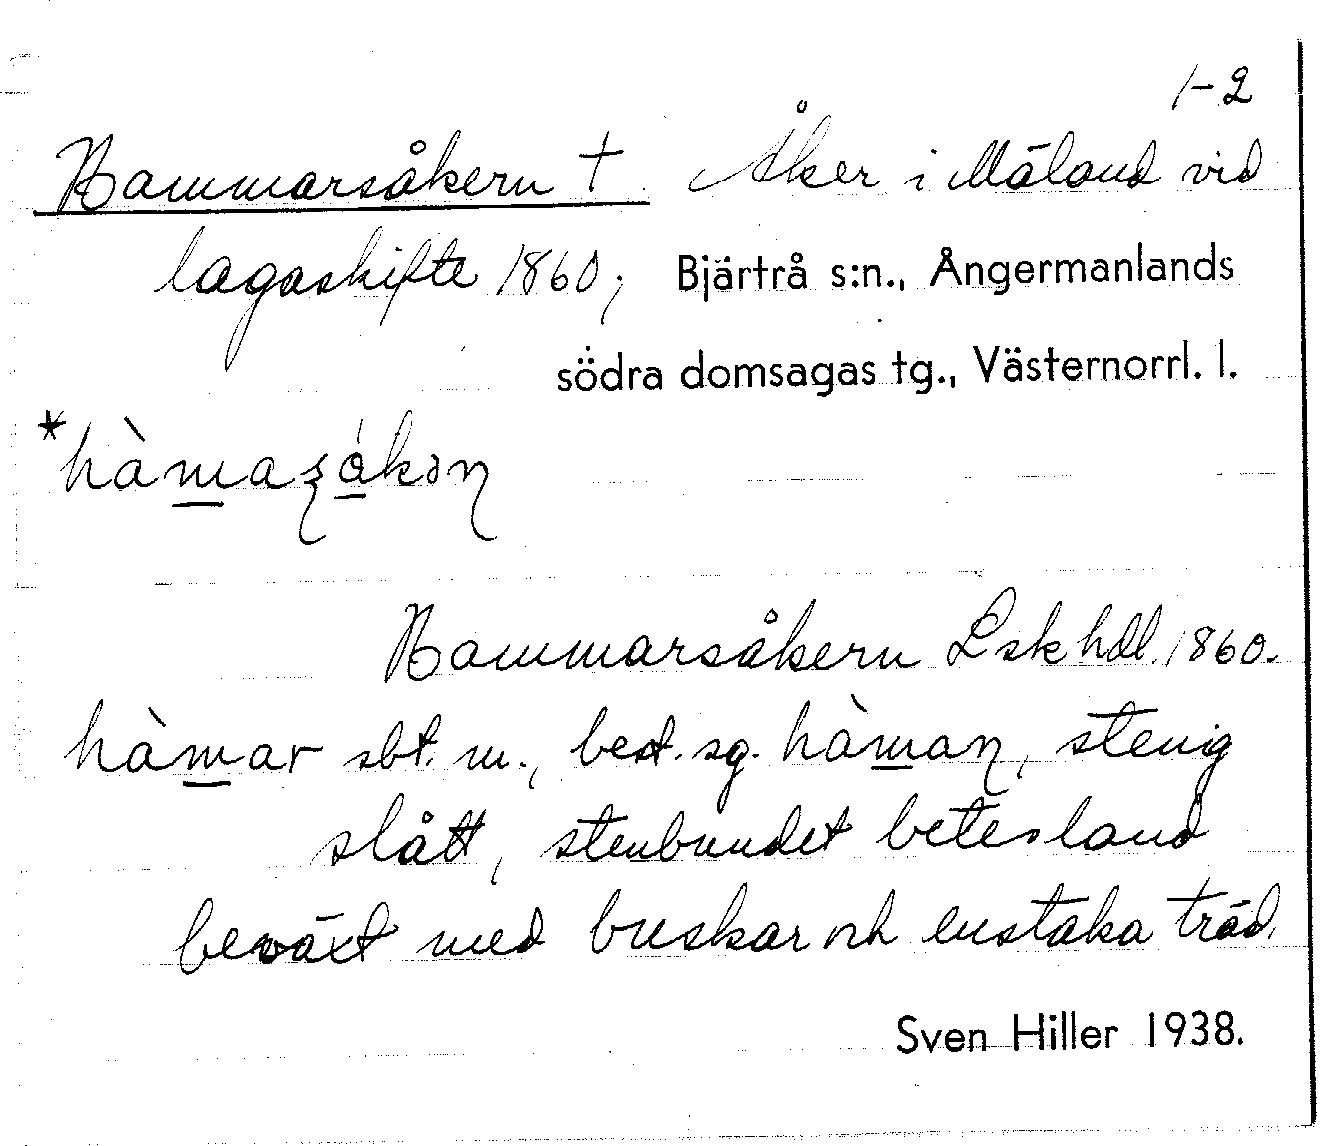 1-2
Hammarsåkern † Åker i Mäland vid
lagaskifte 1860; Bjärtrå s:n., Ångermanlands
södra domsagas tg., Västernorrl. l.
*hàm̲aʂǻ̲kəɳ
Hammarsåkern Lskhdl. 1860.
hàm̲ar sbt. m., best. sg. hàm̲aɳ, stenig
slått, stenbundet betesland
beväxt med buskar och enstaka träd.
Sven Hiller 1938.